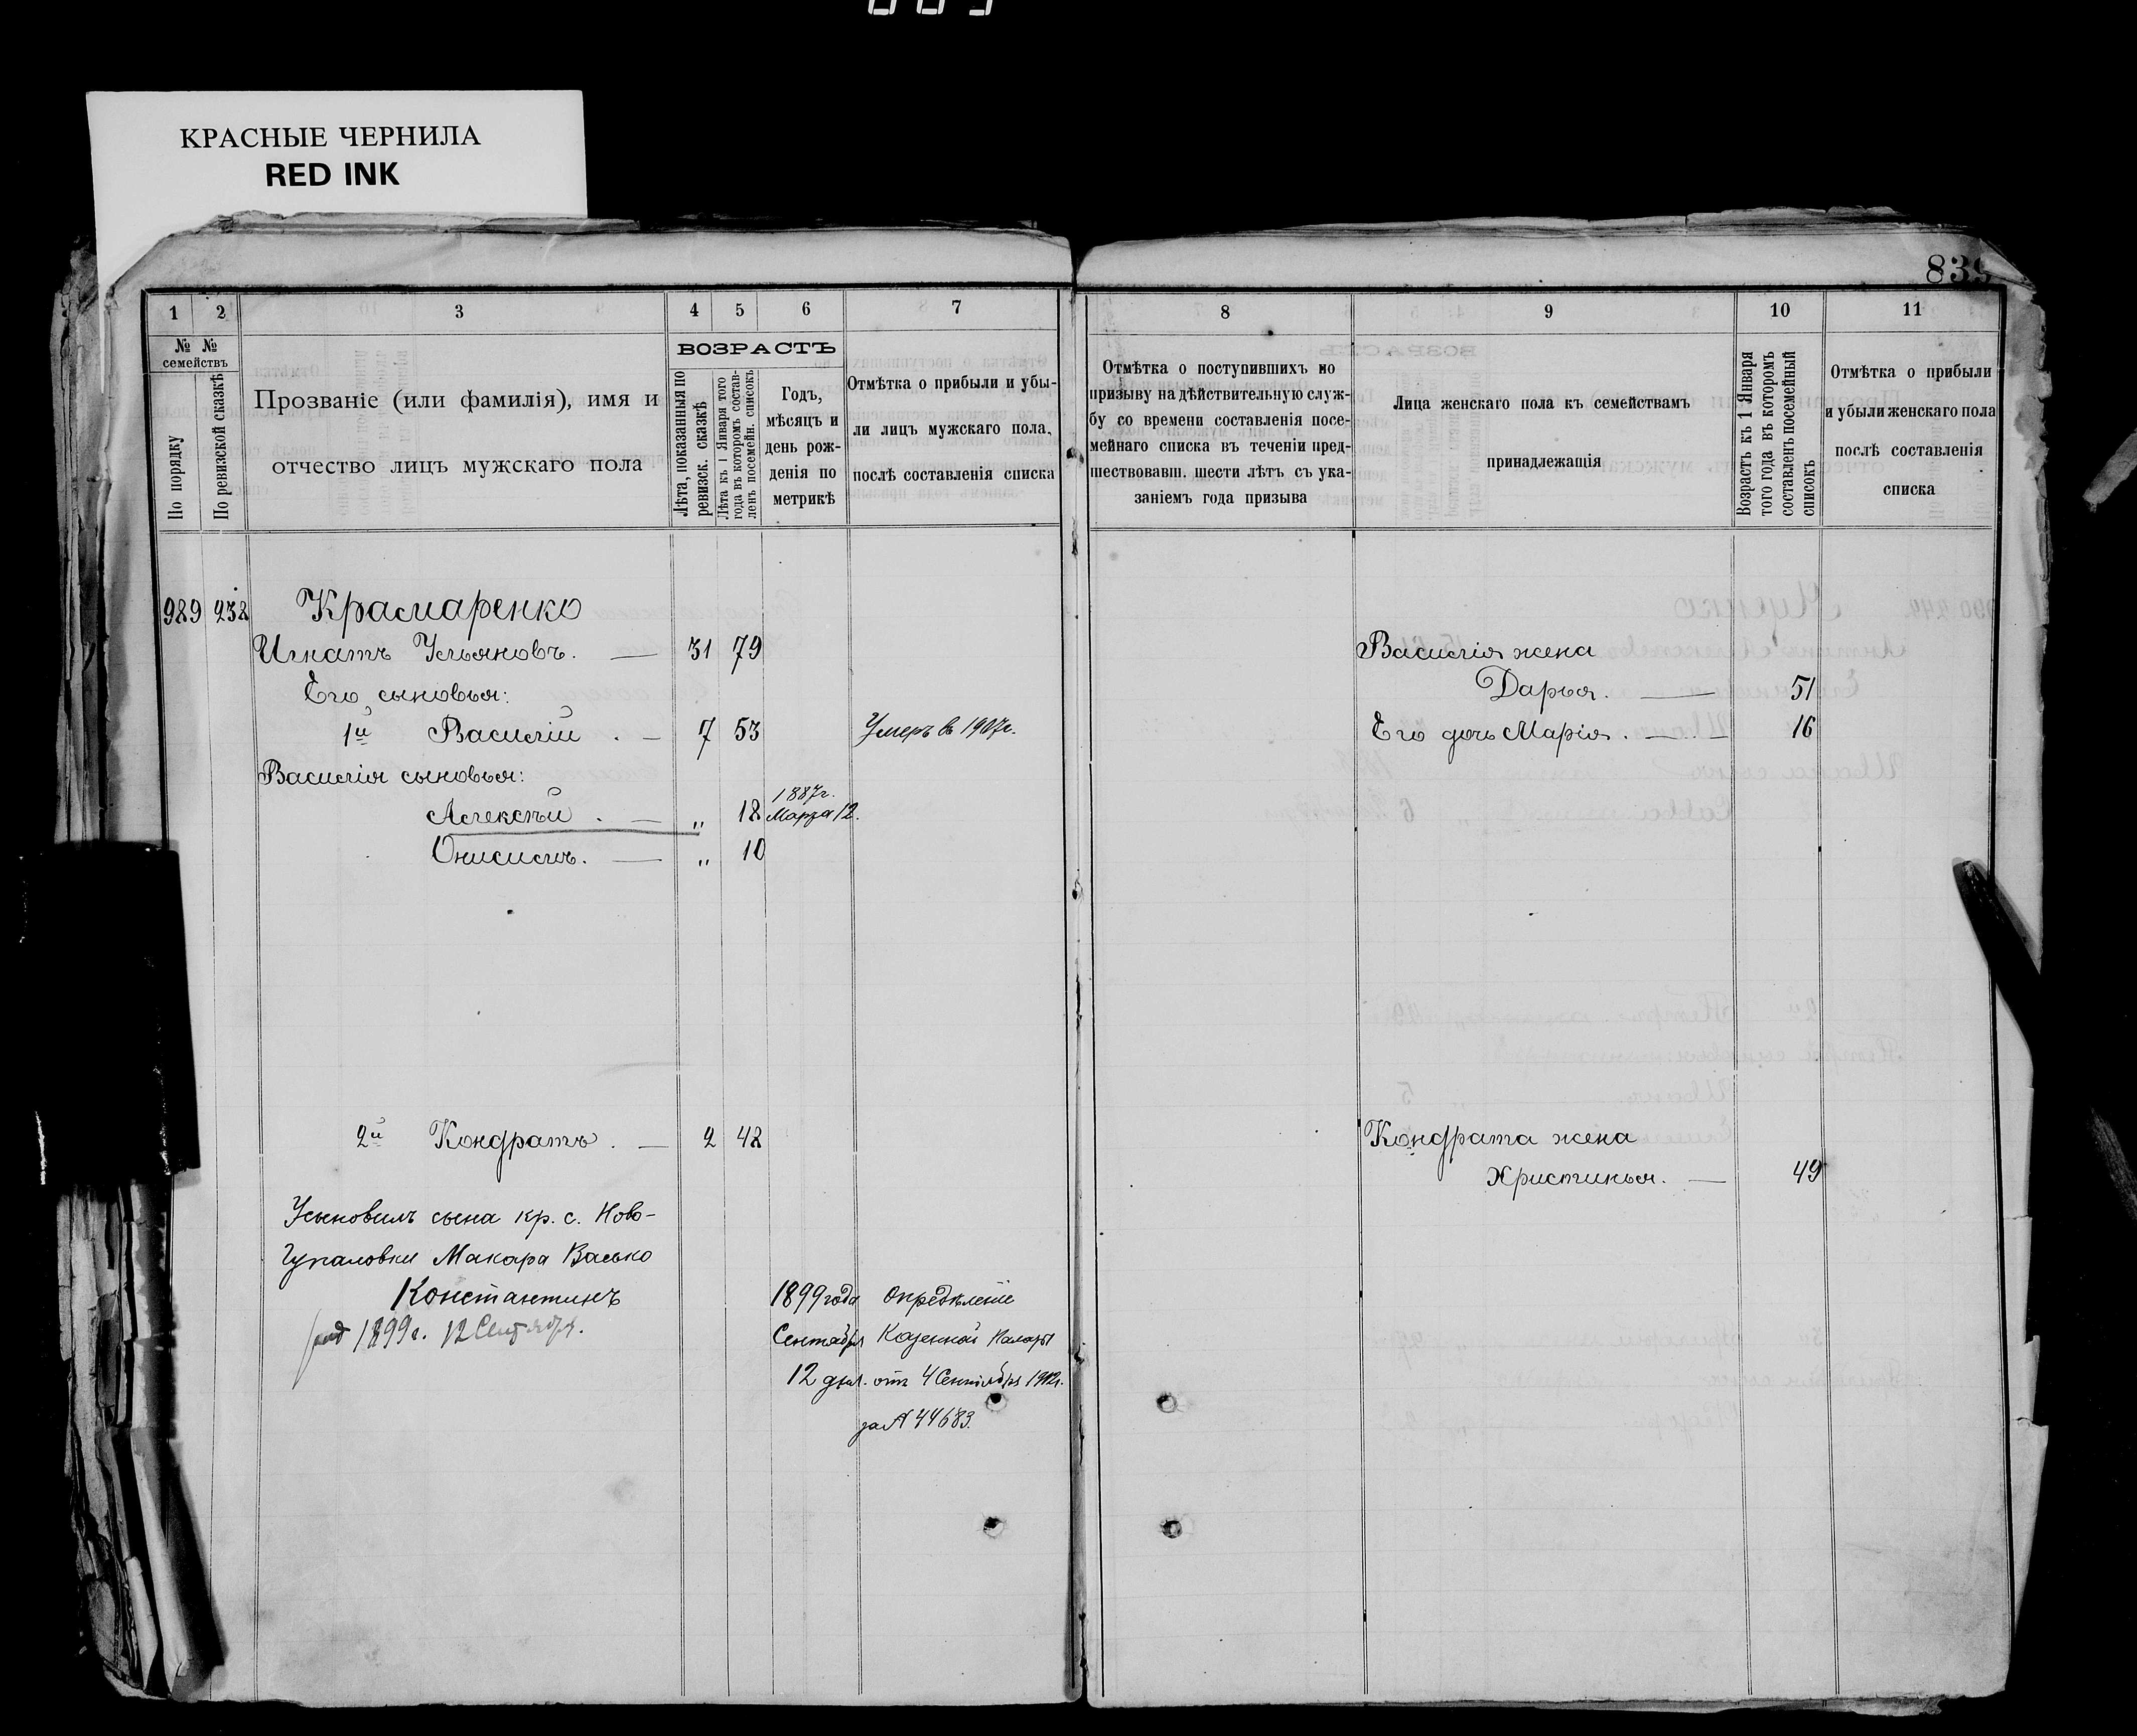 КРАСНЫЕ ЧЕРНИЛА
RED INK
839
1 2 3 4 5 6 7
№ № семействъ
По порядку
По ревизской сказкѣ
Прозваніе (или фамилія), имя и
отчество лицъ мужскаго пола
ВОЗРАСТЪ
Лѣта, показанныя по
ревизск. сказкѣ
Лѣта къ 1 Января того
года въ которомъ состав-
ленъ посемейн. списокъ
Годъ,
мѣсяцъ и
день рож-
денія по
метрикѣ
Отмѣтка о прибыли и убы-
ли лицъ мужскаго пола,
послѣ составленія списка
989 238 Крамаренко
Игнатъ Ульяновъ. — 31 79
Его сыновья:
1й Василій . — 7 53 Умеръ въ 1907г.
Василія сыновья:
1887г.
Алексѣй . — „ 18 Марта 12.
Онисимъ. — „ 10
2й Кондратъ . — 2 48
Усыновилъ сына кр. с. Ново-
Гупаловки Макара Васько
Константинъ 1899 года Опредѣленіе
род 1899 г. 12 Сентября. Сентября Казенной Палаты
12 дня. отъ 4 Сентября 1912г.
за № 44683.
8 9 10 11
Отмѣтка о поступившихъ по
призыву на дѣйствительную служ-
бу со времени составленія посе-
мейнаго списка въ теченіи пред-
шествовавш. шести лѣтъ съ ука-
заніемъ года призыва
Лица женскаго пола къ семействамъ
принадлежащія
Возрастъ къ 1 Января
того года въ которомъ
составленъ посемейный
списокъ
Отмѣтка о прибыли
и убыли женскаго пола
послѣ составленія
списка
Василія жена
Дарья. — 51
Его дочь Марія . — 16
Кондрата жена
Христинья. — 49